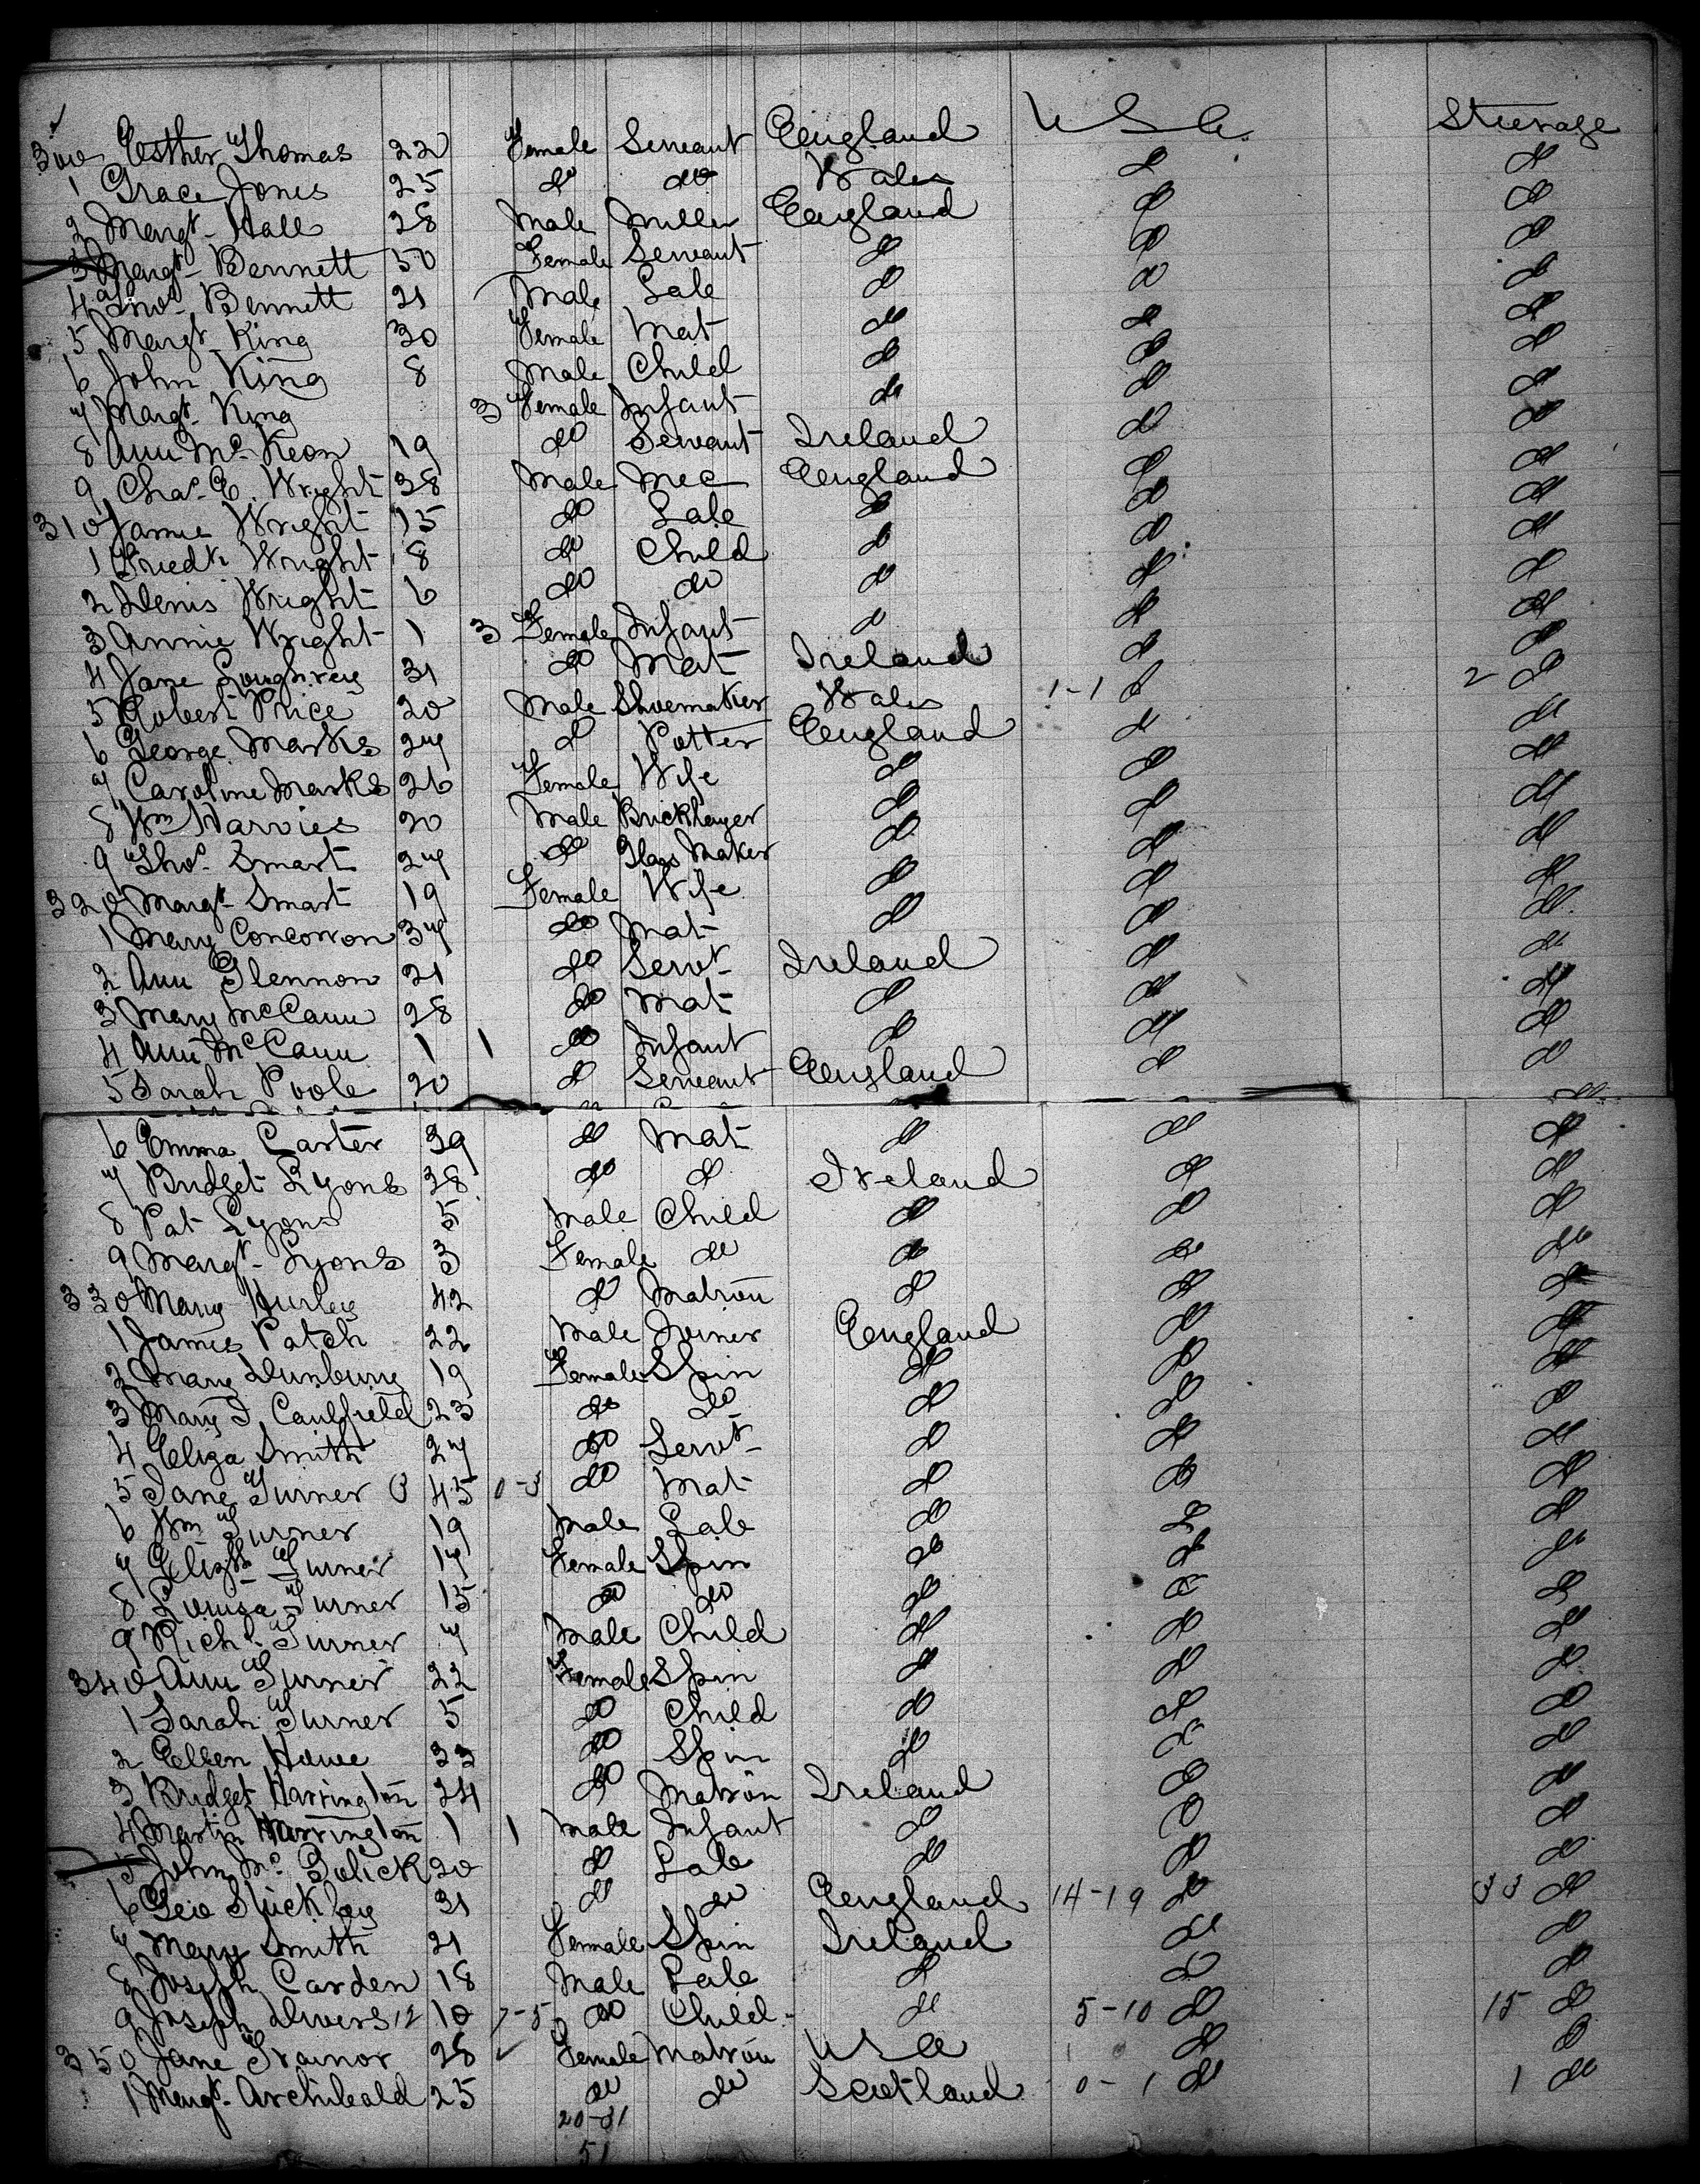 Steerage
300 Esther Thomas 22 Female Servant England U S A.
1 Grace Jones 25 do do Wales do do
2 Margt Hall 28 Male Miller England do do
3 Margt Bennett 50 Female Servant do do do
4 Thos Bennett 21 Male Lab do do do
5 Margt King 30 Female Mat do do do
6 John King 8 Male Child do do do
7 Margt King 3 Female Infant do do do
8 Ann Mc Keon 19 do Servant Ireland do do
9 Chas E. Wright 38 Male Mec England do do
310 Wright 15 do Lab do do do
1 Fredk Wright 8 do Child do do do
2 Denis Wright 6 do do do do do
3 Annie Wright 1 3 Female Infant do do do
4 Jane Loughrey 31 do Mat Ireland do do
5 Robert Price 20 Male Shoemaker Wales 1-1 do 2 do
6 George Marks 27 do Potter England do do
7 Caroline Marks 26 Female Wife do do do
8 Wm Harvies 20 Male Bricklayer do do do
9 Thos. Smart 27 do Glass Maker do do do
320 Margt Smart 19 Female Wife do do do
1 Mary 37 do Mat do do do
2 Ann Glennon 21 do Servt Ireland do do
3 Mary McCann 28 do Mat do do do
4 Ann McCann 1 1 do Infant do do do
5 Sarah Poole 20 do Servant England do do
6 Emma Carter 39 do Mat do do do
7 Bridget Lyons 28 do do Ireland do do
8 Pat Lyons 5 Male Child do do do
9 Margt Lyons 3 Female do do do do
330 Mary Hurley 42 do Matron do do do
1 James Patch 22 Male Joiner England do do
2 Mary Dunbury 19 Female Spin do do do
3 Mary J. Caulfield 23 do do do do do
4 Eliza Smith 27 do Servt do do do
5 Jane Turner 45 0-3 do Mat do do do
6 Wm Turner 19 Male Lab do do do
7 Elizth Turner 17 Female Spin do do do
8 Louisa Turner 15 do do do do do
9 Richd Turner 7 Male Child do do do
340 Ann Turner 22 Female Spin do do do
1 Sarah Turner 5 do Child do do do
2 Ellen Howe 33 do Spin do do do
3 Bridget Harrington 24 do Matron Ireland do do
4 Martin Harrington 1 1 Male Infant do do do
5 John Mc Golick 20 do Lab do do do
6 Geo Stuckley 31 do do England 14-19 do 33 do
7 Mary Smith 21 Female Spin Ireland do do
8 Joseph Carden 18 Male Lab do do do
9 Joseph Divers 12 10 7-5 do Child do 5-10 do 15 do
350 Jane Trainor 28 Female Matron U S A 1 0 do do
1 Margt Archibald 25 do do Scotland 0-1 do 1 do
20-31
51